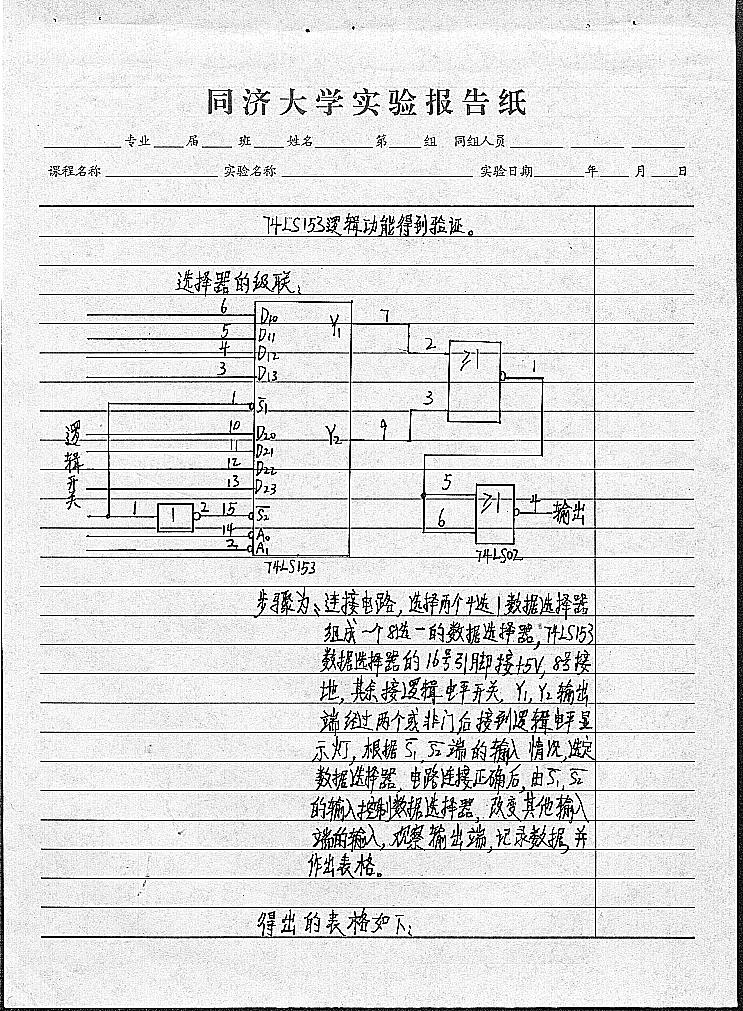 同济大学实验报告纸
专业 届 班 姓名 第 组 同组人员
课程名称 实验名称 实验日期 年 月 日
74LS153逻辑功能得到验证。
选择器的级联:
6 D10 Y1 7
5 D11
4 D12 2 ≥1 1
3 D13
1 S̅1 3
逻辑开关
10 D20 Y2 9
11 D21
12 D22
13 D23 5 ≥1 4 输出
1 1 2 15 S̅2 6
14 A0
2 A1
74LS153 74LS02
步骤为、连接电路,选择两个4选1数据选择器
组成一个8选一的数据选择器,74LS153
数据选择器的16号引脚接+5V,8号接
地,其余接逻辑电平开关,Y1,Y2输出
端经过两个或非门后接到逻辑电平显
示灯,根据S̅1,S̅2端的输入情况,选定
数据选择器,电路连接正确后,由S̅1,S̅2
的输入控制数据选择器,改变其他输入
端的输入,观察输出端,记录数据,并
作出表格。
得出的表格如下: